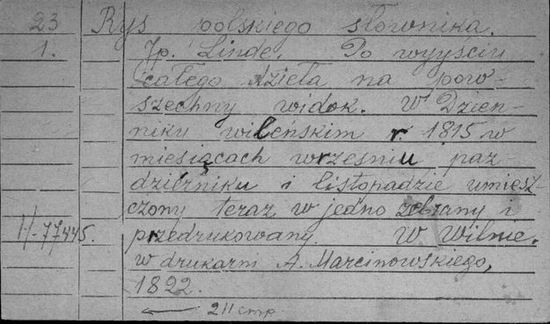 23 Rys polskiego słownika.
1. Jp. Linde. Po wyyściu
całego dzieła na pow-
szechny widok. W Dzien-
niku wileńskim r. 1815 w
miesiącach wrześniu paź-
dzierniku i listopadzie umiesz-
czony teraz w jedno zebrany i
przedrukowany. W Wilnie.
w drukarni A. Marcinowskiego,
1822.
← 211 стр